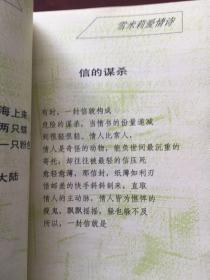 雪米莉爱情诗
信的谋杀
海上来
两只蝶
一只粉
大陆
有时，一封信就构成
危险的谋杀，当情书的份量递减
到很轻很轻，情人比常人，
情人是奇怪的动物，能负世间最沉重的
寄托，却往往被最轻的信压死
愈轻愈薄，那信封，纸薄如利刃
借邮差的快手斜斜来，直取
情人的主动脉，情人皆为憔悴的
瘦鬼，飘飘摇摇，躲也躲不及
所以，一封信就是